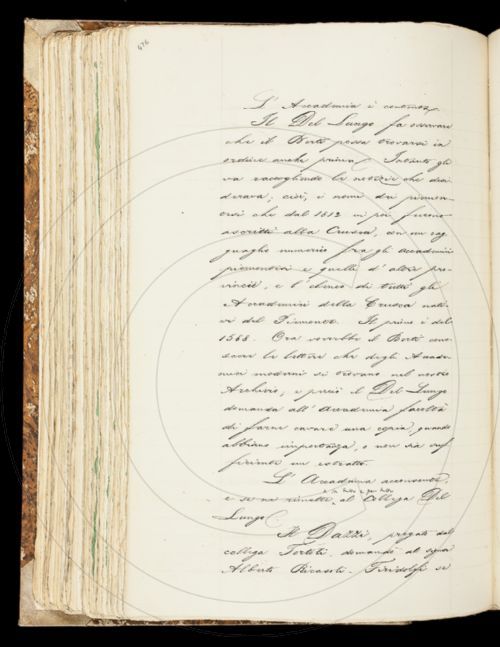 476
L'Accademia è contenta.
Il Del Lungo fa osservare
che il Berti possa trovarsi in
ordine anche prima. Intanto gli
va raccogliendo le notizie che desi-
derava; cioè, i nomi dei piemon-
tesi che dal 1812 in poi furono
ascritti alla Crusca, con un rag-
guaglio numerico fra gli Accademici
piemontesi e quelli d'altre pro-
vincie, e l'elenco di tutti gli
Accademici della Crusca nati-
vi del Piemonte. Il primo è del
1588. Ora vorrebbe il Berti
le lettere che degli Accade-
mici moderni si trovano nel nostro
Archivio; e perciò il Del Lungo
domanda all'Accademia facoltà
di farne cavare una copia, quando
abbiano importanza, o non sia suf-
ficiente un estratto.
L'Accademia acconsente,
e se ne rimette al Collega Del
Lungo.
Il Dazzi, pregato dal
collega Tortoli, domanda al signor
Alberto Ricasoli-Firidolfi se